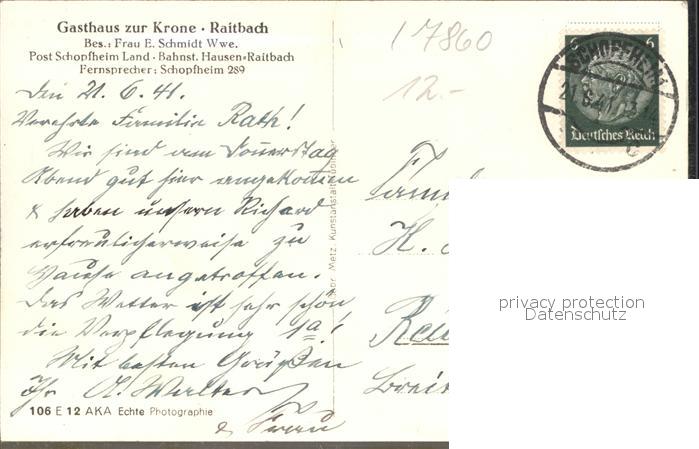 Gasthaus zur Krone · Raitbach
Bes.: Frau E. Schmidt Wwe.
Post Schopfheim Land · Bahnst. Hausen-Raitbach
Fernsprecher: Schopfheim 289
17860
12.-
6 6
SCHOPFHEIM
21.6.41
Deutsches Reich
c
Den 21.6.41.
Verehrte Familie Rath!
Wir sind am Donerstag
Abend gut hier angekommen
& haben unsern Richard
erfreulicherweise zu
Hause angetroffen.
Das Wetter ist sehr schön
die Verpflegung 1a!
Mit besten Grüßen
Ihr A. Walter
& Frau
106 E 12 AKA Echte Photographie
Metz Kunstanstalt
H.
privacy protection
Datenschutz